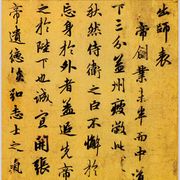 出師表
帝創業未半而中道
下三分益州疲敝此
秋然侍衛之臣不懈於
忘身於外者蓋追先帝
之於陛下也誠宜開張
帝遺德恢和志士之氣